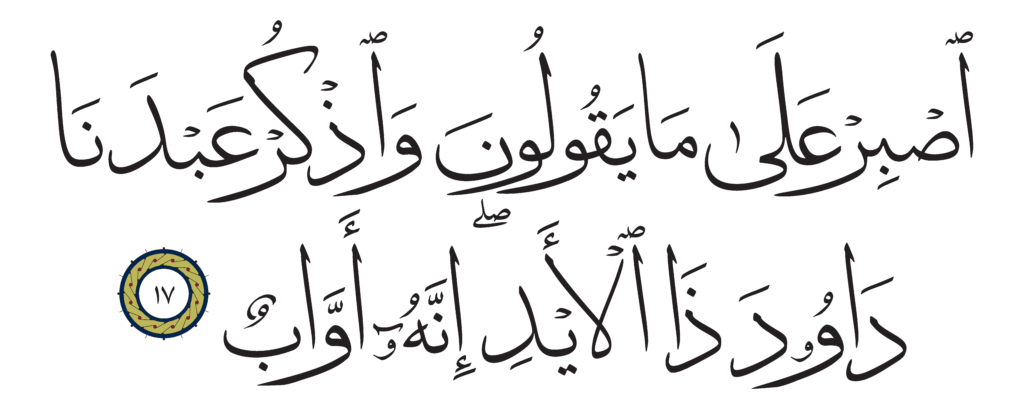 ٱصۡبِرۡ عَلَىٰ مَا يَقُولُونَ وَٱذۡكُرۡ عَبۡدَنَا
دَاوُۥدَ ذَا ٱلۡأَيۡدِۖ إِنَّهُۥٓ أَوَّابٌ ١٧